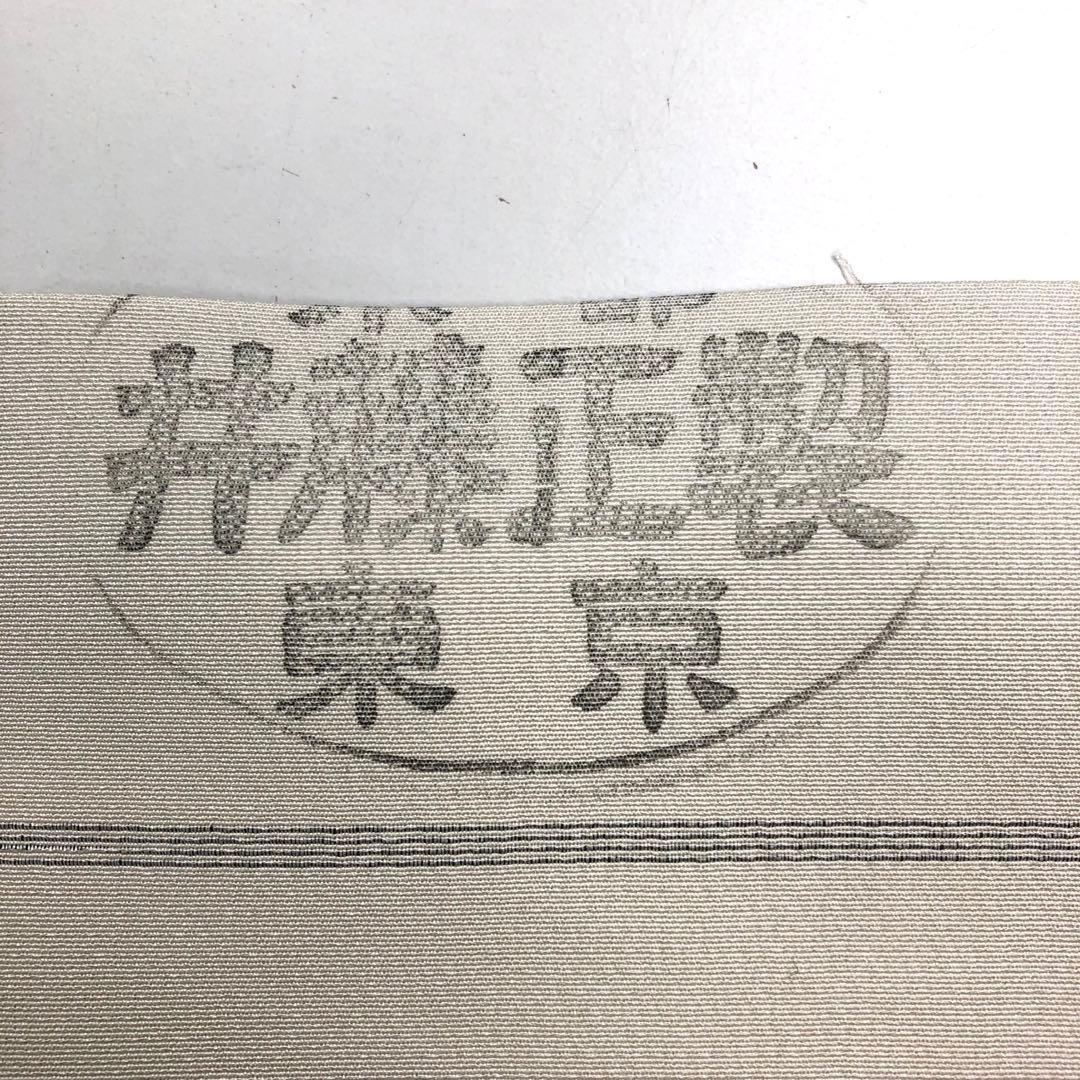 井藤正製
東京